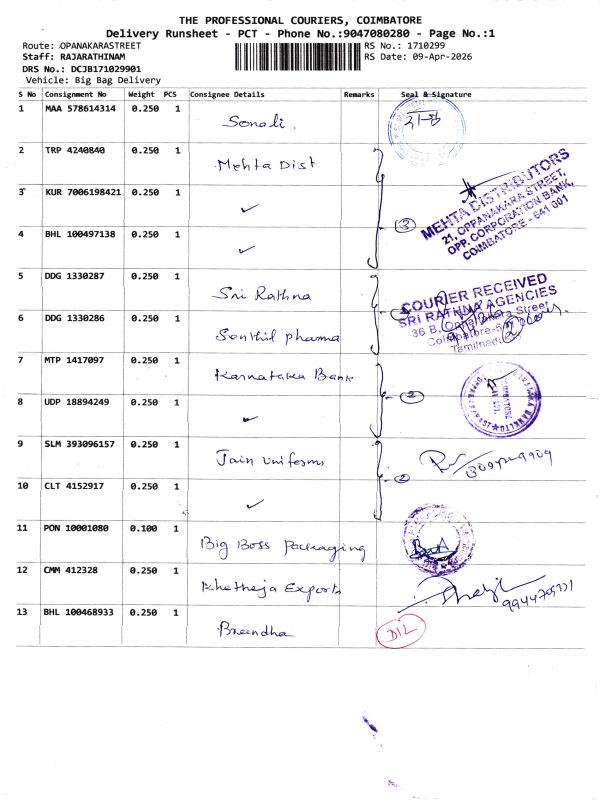 THE PROFESSIONAL COURIERS, COIMBATORE
Delivery Runsheet - PCT - Phone No.:9047080280 - Page No.:1
Route: OPANAKARASTREET
RS No.: 1710299
Staff: RAJARATHINAM
RS Date: 09-Apr-2026
DRS No.: DCJB171029901
Vehicle: Big Bag Delivery
S No Consignment No Weight PCS Consignee Details Remarks Seal & Signature
1 MAA 578614314 0.250 1 Sonali.
2 TRP 4240840 0.250 1 Mehta Dist
3 KUR 7006198421 0.250 1 ✓
4 BHL 100497138 0.250 1 ✓
3
MEHTA DISTRIBUTORS
21, OPPANAKARA STREET,
OPP. CORPORATION BANK,
COIMBATORE - 641 001
5 DDG 1330287 0.250 1 Sri Rathna
6 DDG 1330286 0.250 1 Senthil pharma
COURIER RECEIVED
SRI RATHNA AGENCIES
36 B, Oppanakara Street
Coimbatore-6
Tamilnadu
2
7 MTP 1417097 0.250 1 Karnataka Bank
8 UDP 18894249 0.250 1 ✓
2
9 SLM 393096157 0.250 1 Jain Uniforms
10 CLT 4152917 0.250 1 ✓
2
11 PON 10001080 0.100 1 Big Boss Packaging
12 CMM 412328 0.250 1 Khetheja Exports
13 BHL 100468933 0.250 1 Breendha
D12